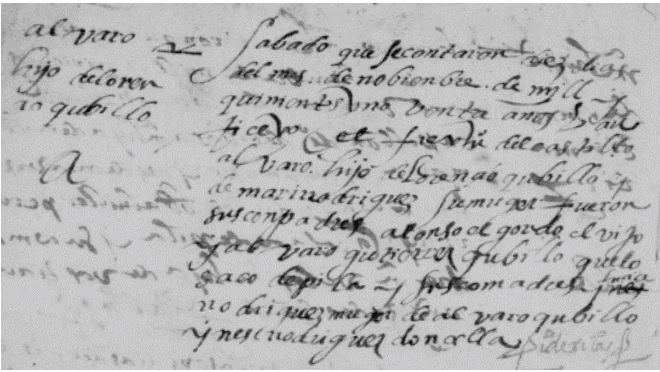 alvaro
hijo de loren
ço qubillo
sabado que se contaron diez dias
del mes de nobienbre de mill y
quinientos y noventa años bau
tiço yo el del castillo
alvaro hijo de lorenço qubillo y
de mari rrodriguez su muger fueron
sus conpadres alonso el gordo el vijo
y alvaro gutierrez qubillo que lo
saco de pila y sus comadres
rrodriguez muger de alvaro qubillo
y ines rrodriguez donzella